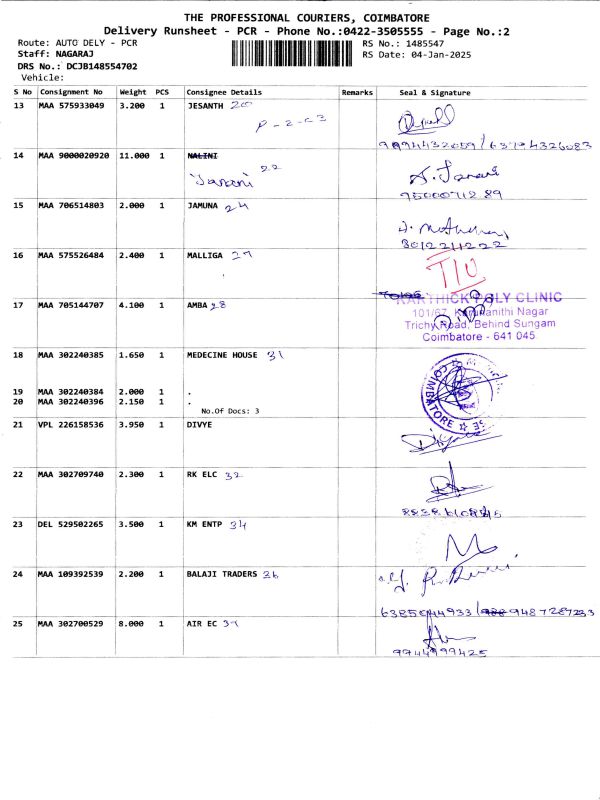 THE PROFESSIONAL COURIERS, COIMBATORE
Delivery Runsheet - PCR - Phone No.:0422-3505555 - Page No.:2
Route: AUTO DELY - PCR
RS No.: 1485547
Staff: NAGARAJ
RS Date: 04-Jan-2025
DRS No.: DCJB148554702
Vehicle:
S No Consignment No Weight PCS Consignee Details Remarks Seal & Signature
13 MAA 575933049 3.200 1 JESANTH 20
P-2-C3
14 MAA 9000020920 11.000 1 NALINI 22
Janani
J. Janani
15 MAA 706514803 2.000 1 JAMUNA 24
3012211222
16 MAA 575526484 2.400 1 MALLIGA 27
KARTHICK POLY CLINIC
17 MAA 705144707 4.100 1 AMBA 28
101/67, Karunanithi Nagar
Trichy Road, Behind Sungam
Coimbatore - 641 045.
18 MAA 302240385 1.650 1 MEDECINE HOUSE 31
COIMBATORE
19 MAA 302240384 2.000 1 .
20 MAA 302240396 2.150 1 .
No.Of Docs: 3
21 VPL 226158536 3.950 1 DIVYE
22 MAA 302709740 2.300 1 RK ELC 32
23 DEL 529502265 3.500 1 KM ENTP 34
24 MAA 109392539 2.200 1 BALAJI TRADERS 36
25 MAA 302700529 8.000 1 AIR EC 37
9944999425